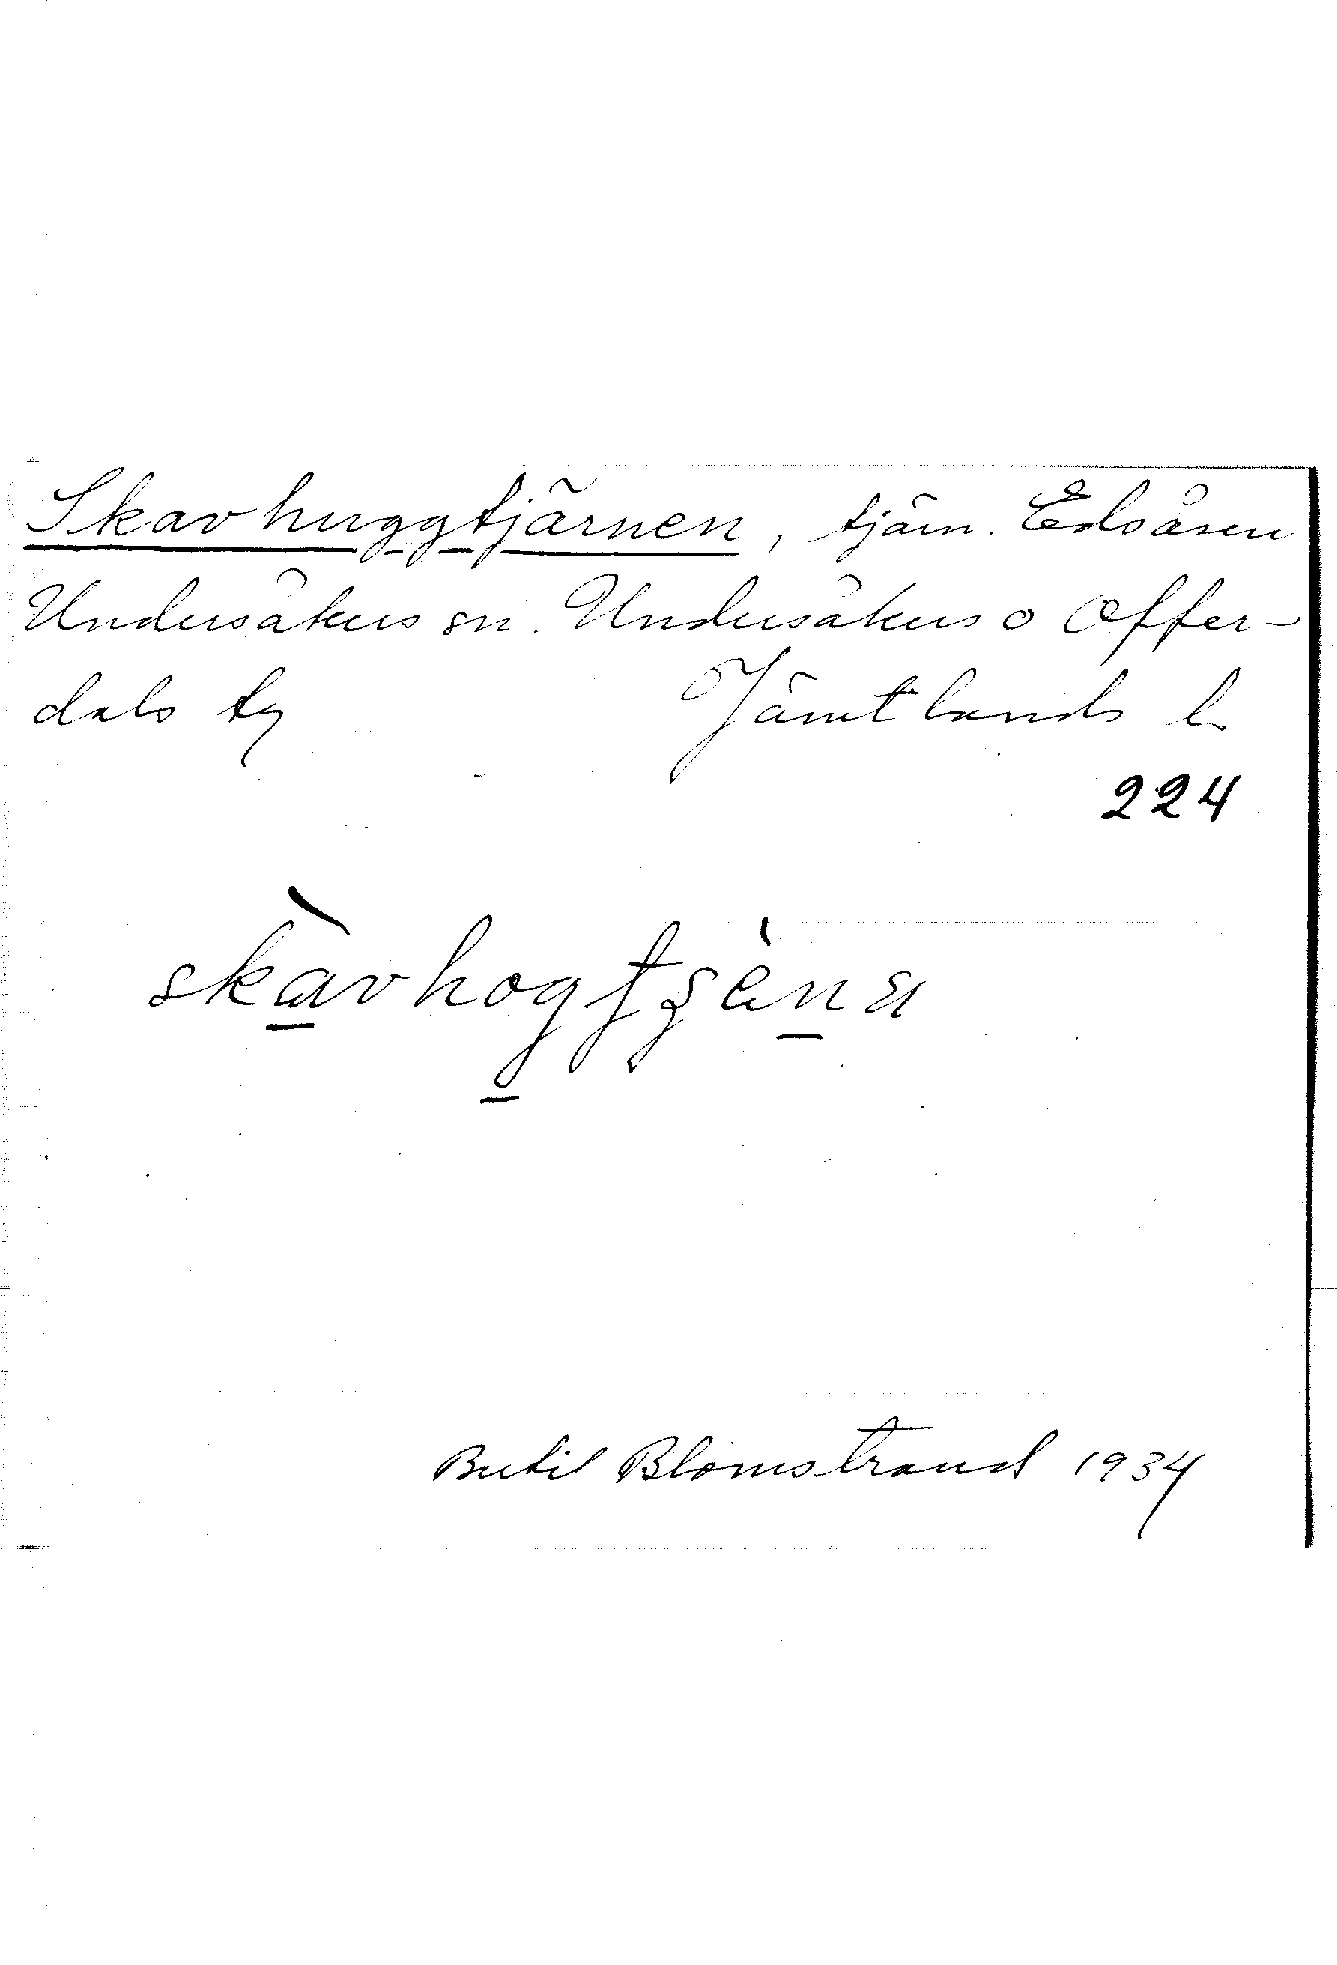 Skavhuggtjärnen, tjärn. Edsåsen
Undersåkers sn. Undersåkers o Offer-
dals tg Jämtlands l.
224
skàvhogtʂènɑ
Bertil Blomstrand 1934